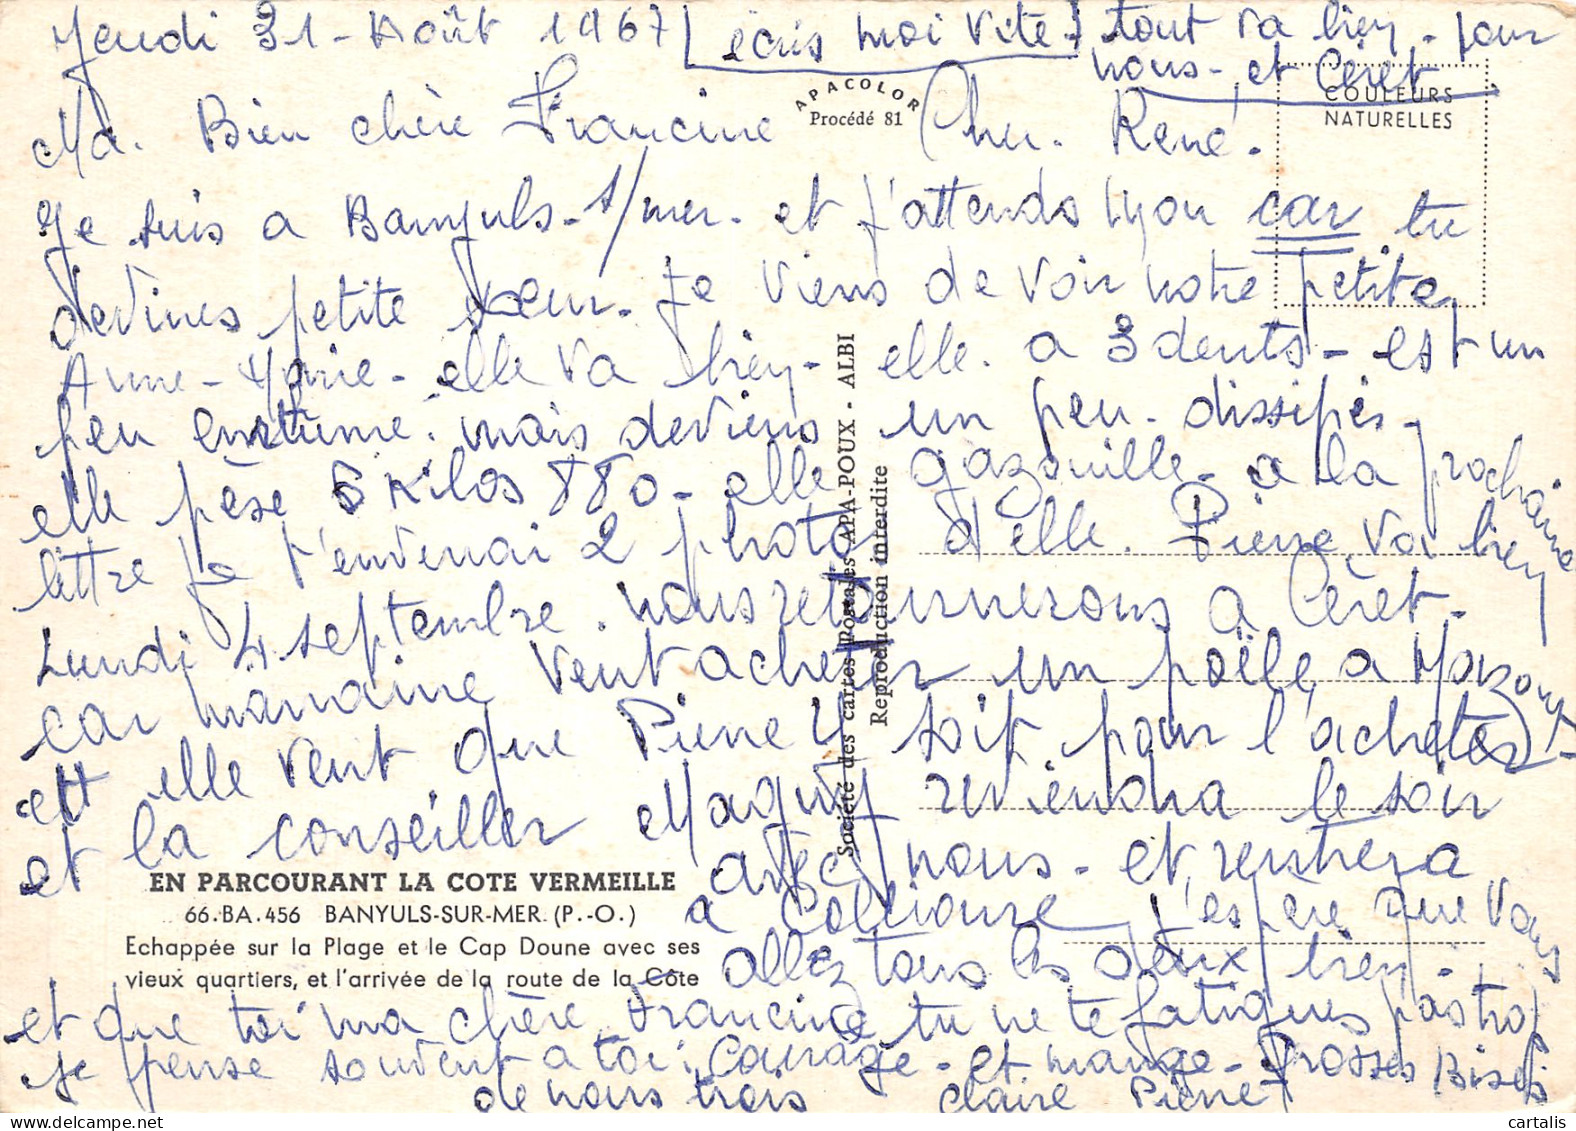 Jeudi 31 - Août 1967 écris moi vite - tout va bien - pour
nous - et Céret
APACOLOR
Procédé 81
COULEURS
NATURELLES
Ma. Bien chère Francine Cher. René.
Je suis a Banyuls - s/mer. et j'attends Lyon car tu
devines petite soeur. Je viens de voir notre petite
Anne-Marie - elle va bien - elle a 3 dents - est un
peu enrhumé. mais deviens un peu dissipés -
elle pèse 6 Kilos 880 - elle gazouille - a la prochaine
lettre je t'envenai 2 photos d'elle. Pierre va bien
Lundi 4 septembre. nous retournerons a Céret -
car manaine veut acheter un poële a Mazout -
et elle veut que Pierre y soit pour l'acheter
et la conseiller Maguy reviendra le soir
avec nous - et rentrera
a Collioure j'espère que vous
allez tous les deux bien -
EN PARCOURANT LA COTE VERMEILLE
66.BA.456 BANYULS-SUR-MER (P.-O.)
Echappée sur la Plage et le Cap Doune avec ses
vieux quartiers, et l'arrivée de la route de la Côte
et que toi ma chère Francine tu ne te fatigues pas trop
je pense souvent a toi. Courage - et mange - Grosses Bises
de nous trois Claire Pierre
Société des cartes postales APA-POUX - ALBI
Reproduction interdite